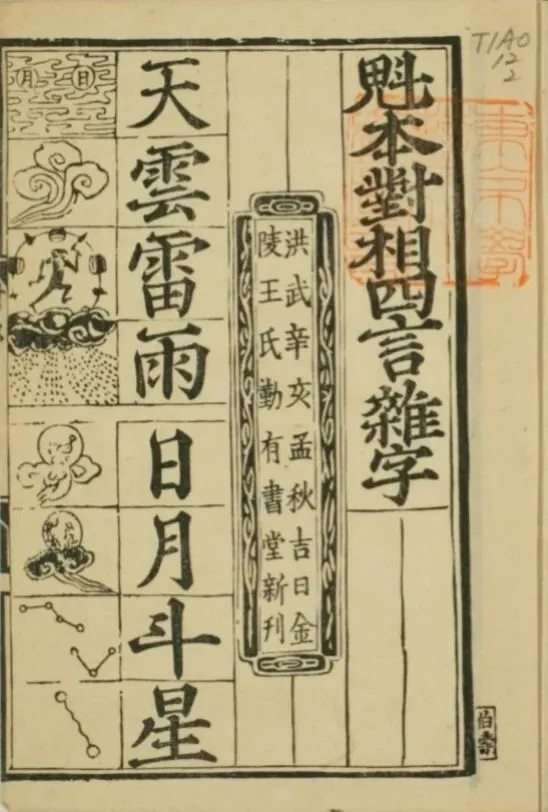 魁本對相四言雜字
洪武辛亥孟秋吉日金
陵王氏勤有書堂新刊
天雲雷雨日月斗星
日
月
TIAO
12
2
伯壽